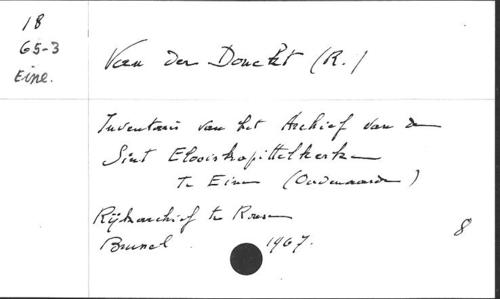 18
65-3
Eine.
Van der Donckt (R.)
Inventaris van het Archief van de
Sint Elooiskapittelkerk
Te Eine (Oudenaarde)
Rijksarchief te Ronse
Brussel. 1967.
8